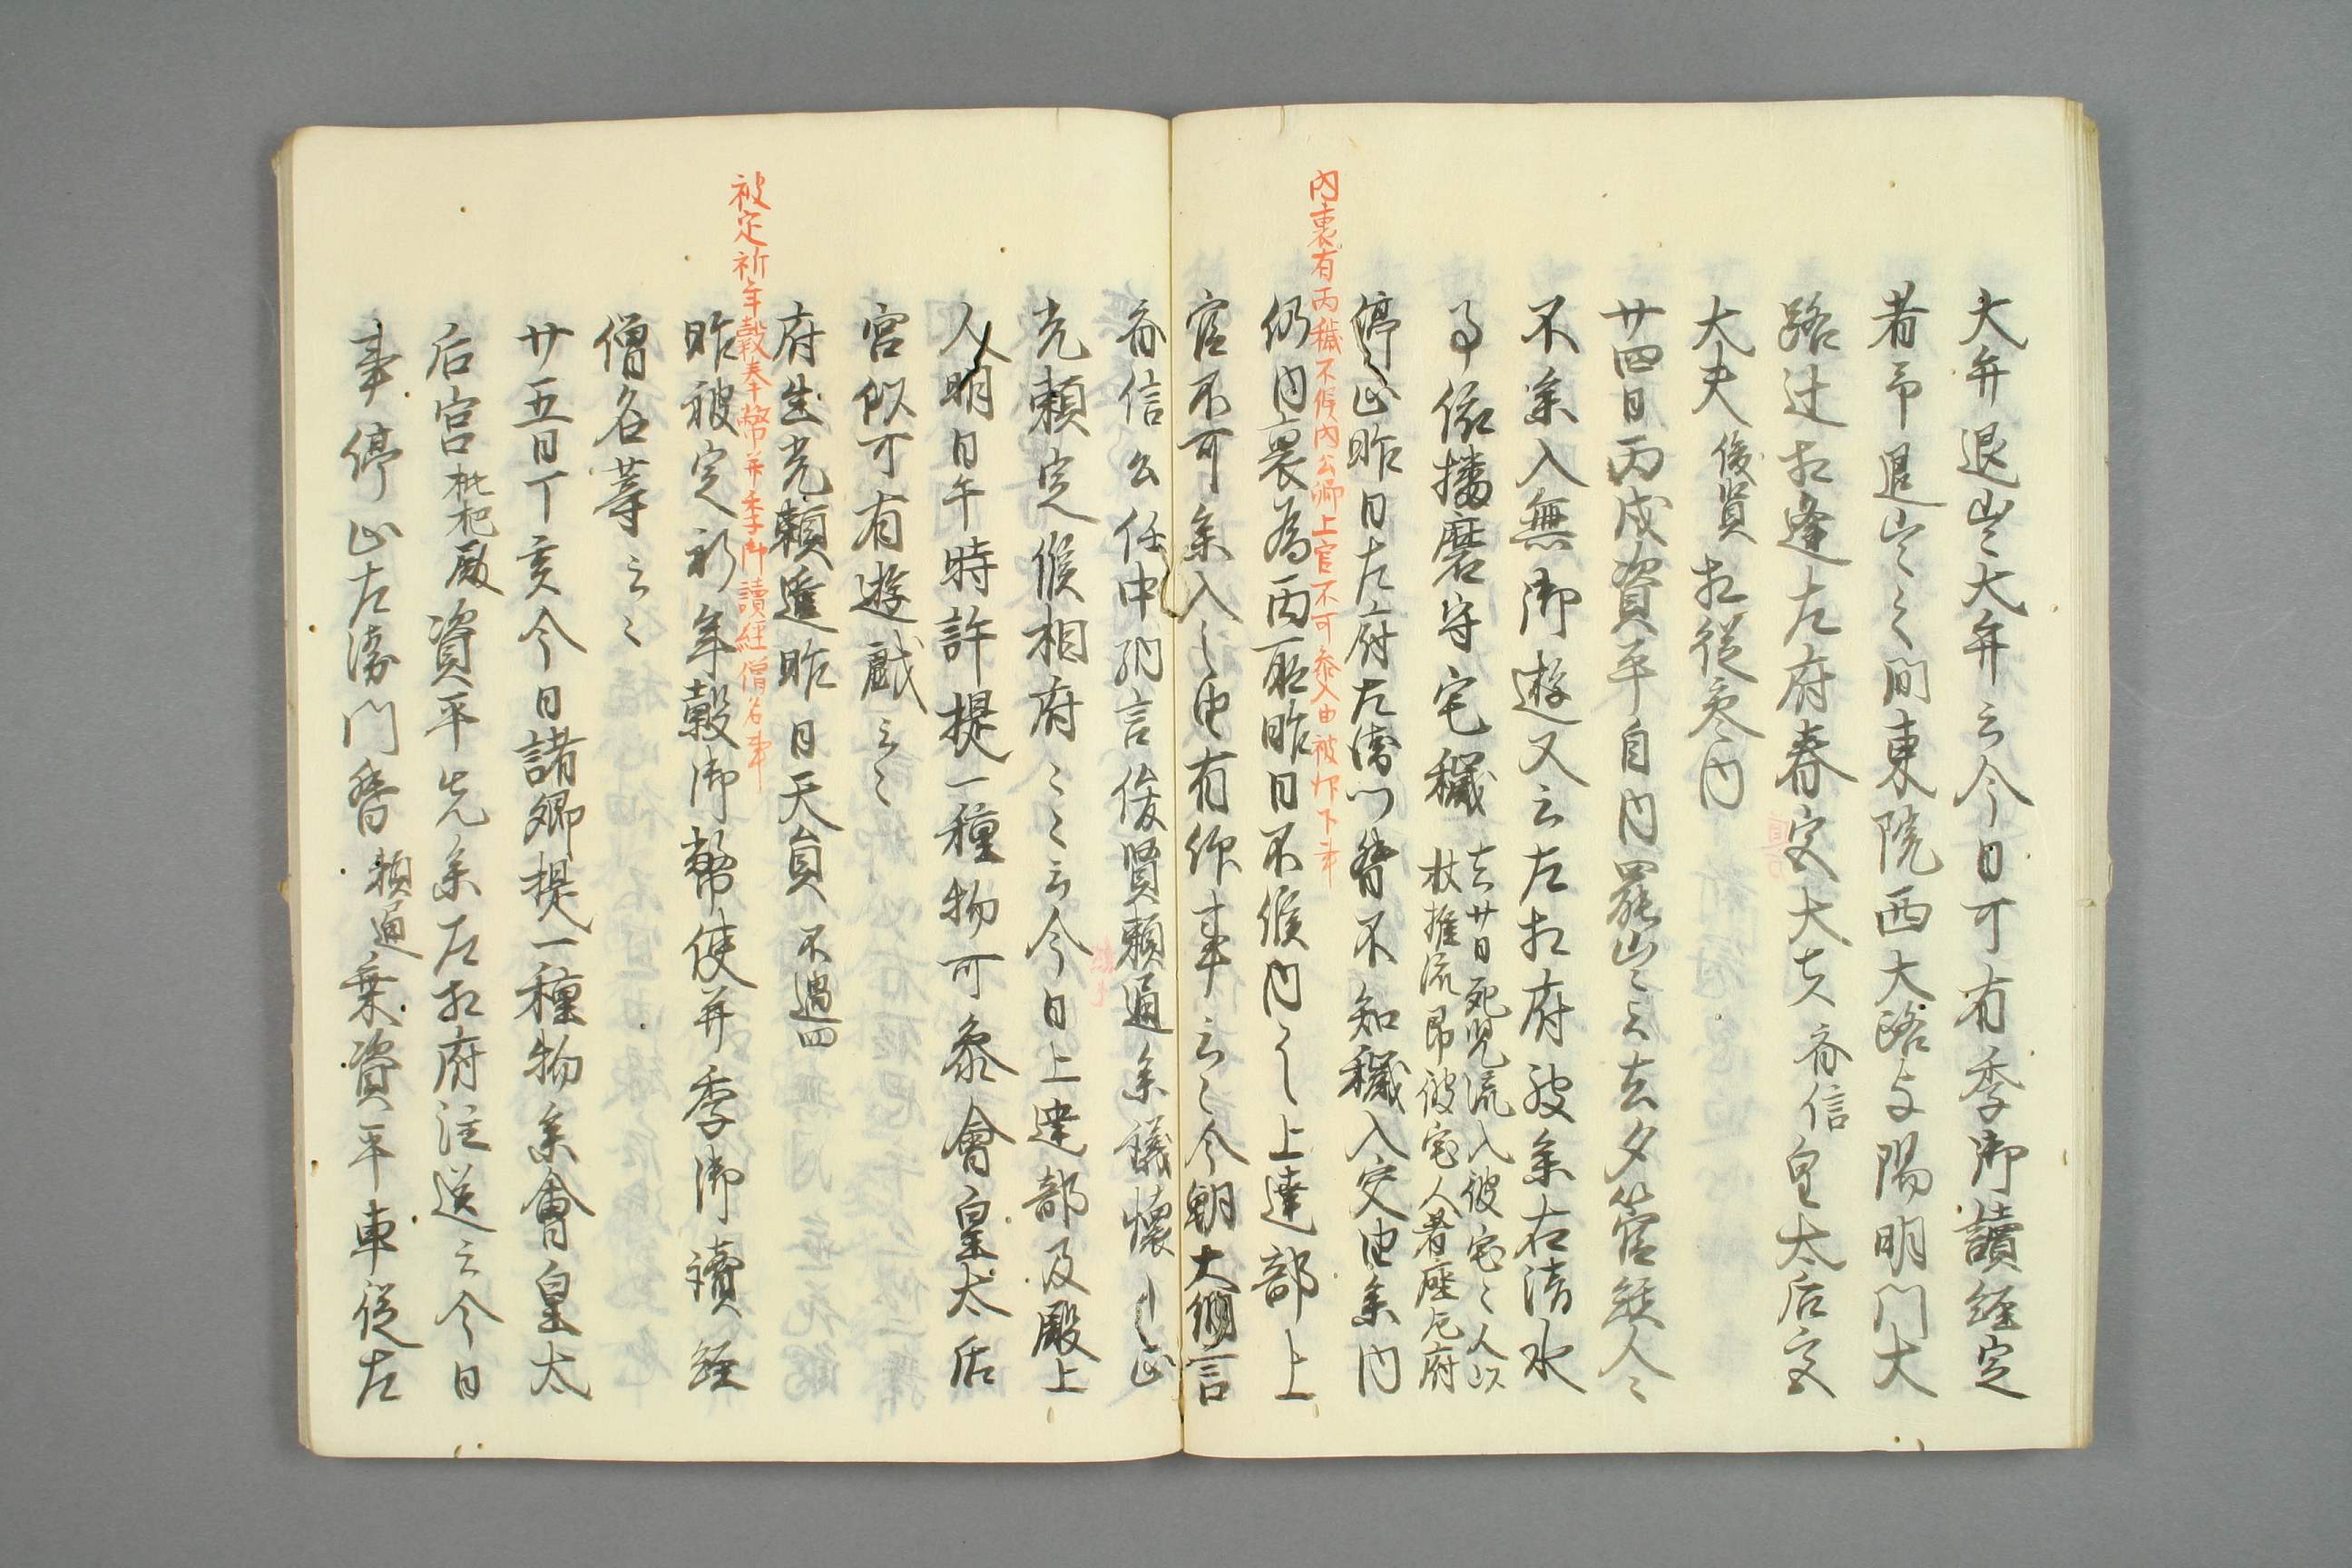 大弁退出、大弁云今日可有季御讀経定
者、即退出、之間東院西大路与陽明門大
路辻相逢左府春宮大夫斉信皇太后宮
大夫俊賢相從参内
廿四日丙戌資平自内罷出云去夕管絃人々
不参入無御遊又云左相府被参石清水
事依播磨守宅穢去廿日死児流入彼宅々人以
杖推流即彼宅人着座左府
停止昨日左府左衛門督不知穢入交由参内
内裏有丙穢不候内公卿上官不可参入由被仰下事
仍内裏為丙所昨日不候内之上達部上
官不可参入之由有仰事云々今朝大納言
斉信公任中納言俊賢頼通参議懐平
光頼定候相府々々云今日上達部及殿上
人明日午時許提一種物可参會皇太后
宮似可有遊戯云々
府生光頼進昨日天員不過四
被定祈年穀奉幣并季御讀経僧名事
昨被定祈年穀御幣使并季御讀経
僧名等云々
廿五日丁亥今日諸卿提一種物参會皇太
后宮枇杷殿資平先参左相府注送云今日
事停止左衛門督頼通乗資平車從左